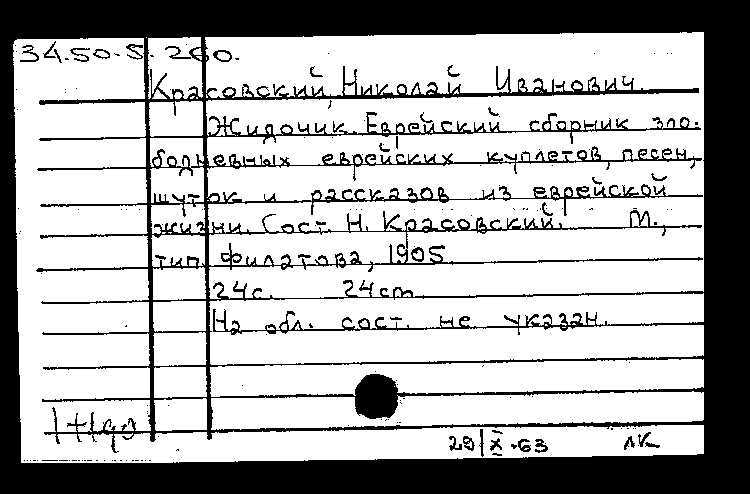 34.50-5. 260.
Красовский, Николай Иванович.
Жидочик. Еврейский сборник зло-
бодневных еврейских куплетов, песен,
шуток и рассказов из еврейской
жизни. Сост. Н. Красовский. М.,
тип. Филатова, 1905.
24с. 24cm
На обл. сост. не указан.
29/X-63 ЛК